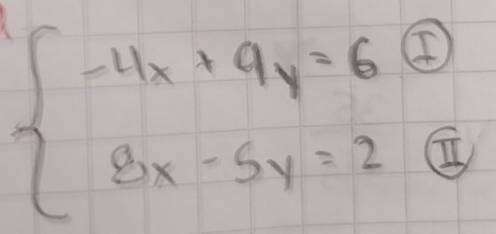 -4x + 9y = 6 Ⓘ
8x - 5y = 2 Ⓘ Ⓘ